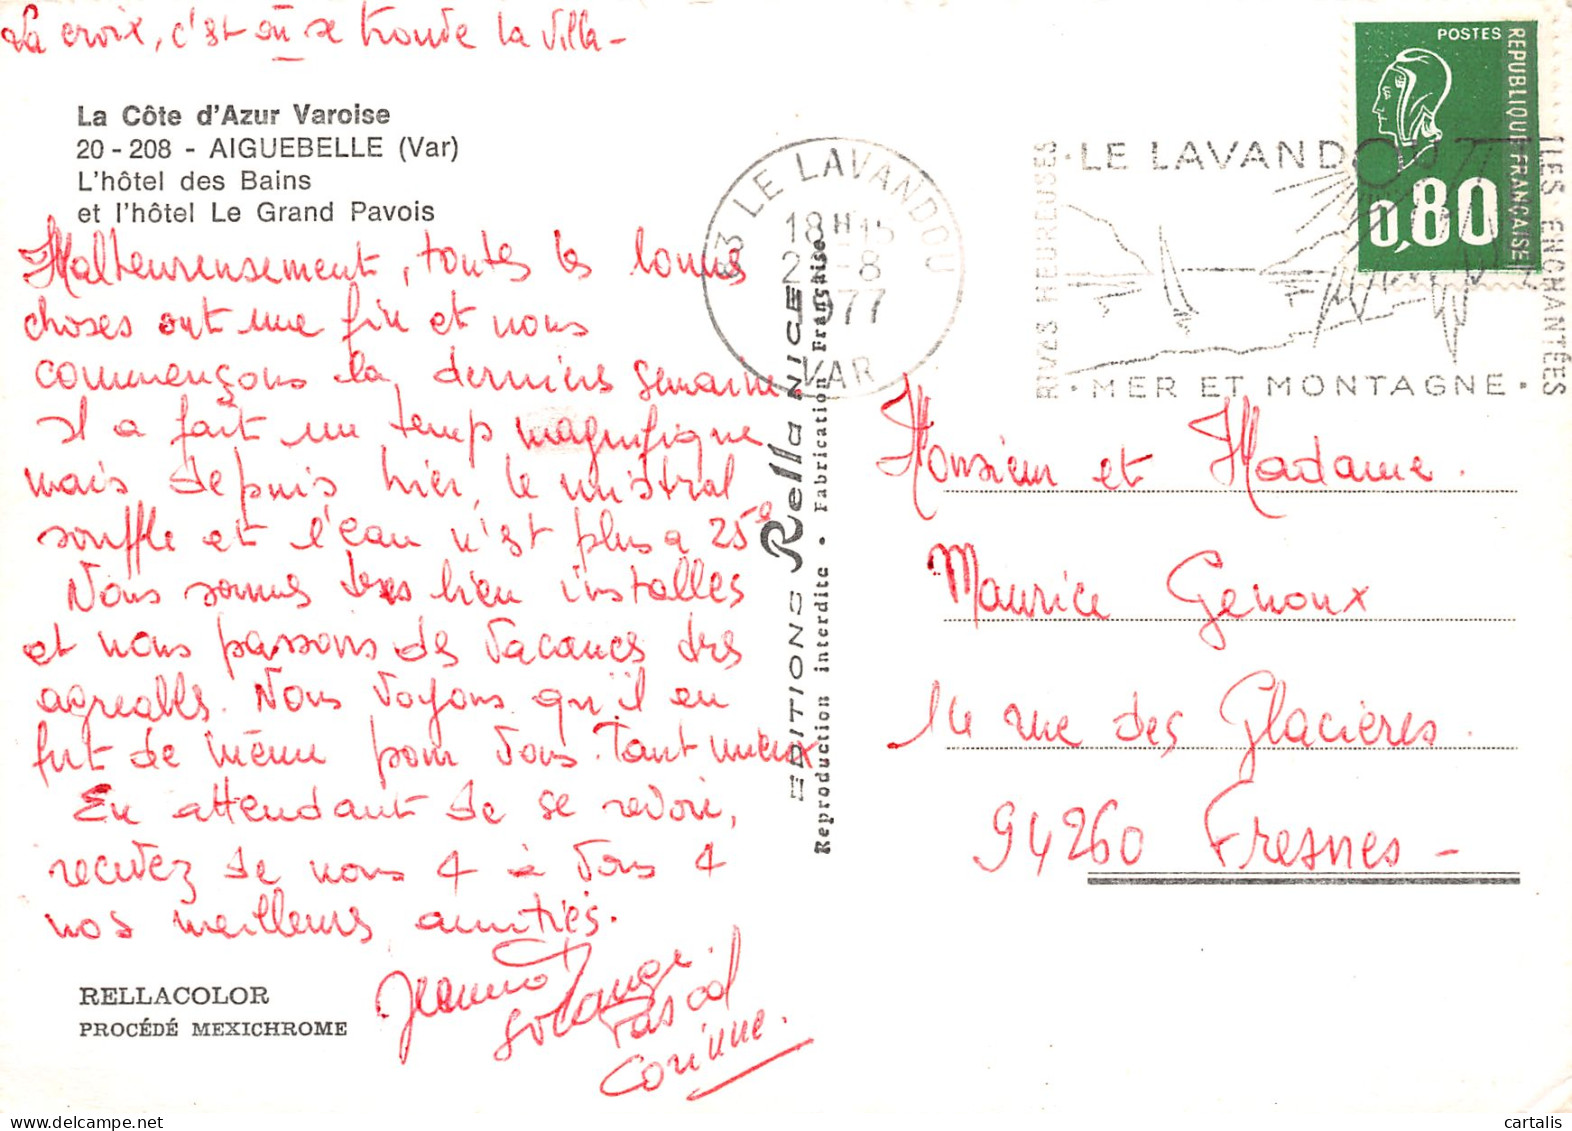 La croix, c'est où se trouve la villa -
La Côte d'Azur Varoise
20 - 208 - AIGUEBELLE (Var)
L'hôtel des Bains
et l'hôtel Le Grand Pavois
Malheureusement, toutes les bonnes
choses ont une fin et nous
commençons la dernière semaine.
Il a fait un temps magnifique
mais depuis hier, le mistral
souffle et l'eau n'est plus à 25°
Nous sommes très bien installés
et nous passons des vacances très
agréables. Nous voyons qu'il en
fut de même pour vous. Tant mieux
En attendant de se revoir,
recevez de nous 4 à vous 4
nos meilleures amitiés.
Jeannot
Solange
Pascal
Corinne.
RELLACOLOR
PROCÉDÉ MEXICHROME
EDITIONS Rella NICE
Reproduction interdite • Fabrication Française
83 LE LAVANDOU
18H15
-8
1977
VAR
RIVES HEUREUSES
• LE LAVANDOU
ILES ENCHANTÉES
• MER ET MONTAGNE •
POSTES
REPUBLIQUE FRANÇAISE
0,80
Monsieur et Madame.
Maurice Genoux
14 rue des Glacières.
94260 Fresnes -
cartalis